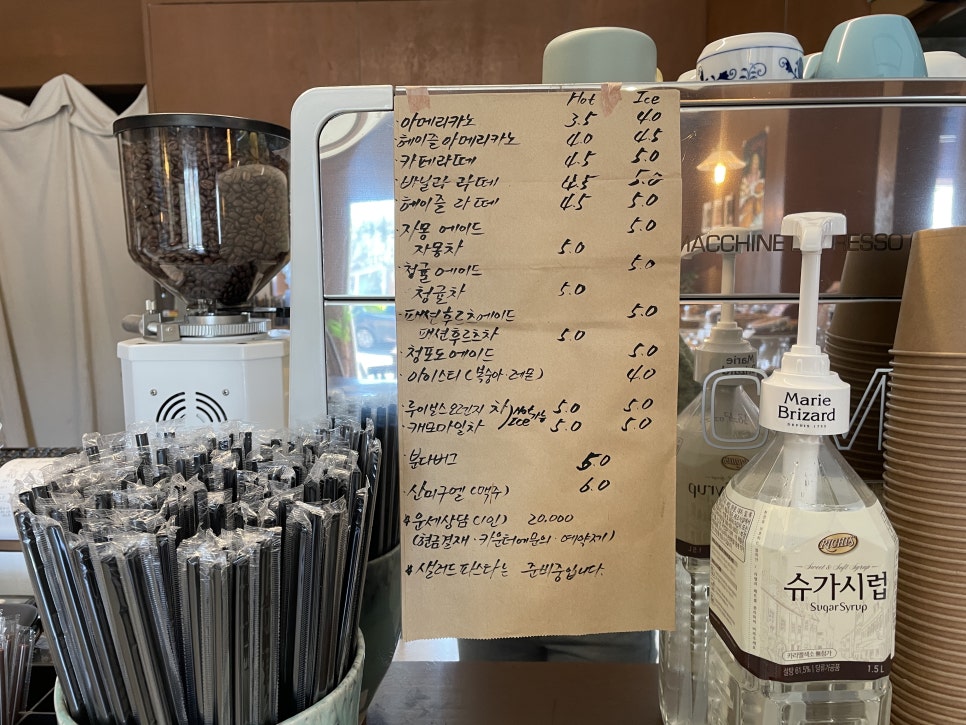 Hot Ice
·아메리카노 3.5 4.0
·헤이즐아메리카노 4.0 4.5
카페라떼 4.5 5.0
·바닐라 라떼 4.5 5.0
·헤이즐 라떼 4.5 5.0
·자몽 에이드 5.0
자몽차 5.0
·청귤 에이드 5.0
청귤차 5.0
·패션후르츠에이드 5.0
패션후르츠차 5.0
·청포도 에이드 5.0
·아이스티 (복숭아·레몬) 4.0
·루이보스 오렌지 차 Hot 5.0 5.0
·캐모마일차 Ice 가능 5.0 5.0
·분다버그 5.0
·산미구엘 (맥주) 6.0
*운세상담 (1인) 20,000
(현금결재·카운터에문의·예약제)
*샐러드 파스타는 준비중입니다.
MACCHINE ESPRESSO
Marie
Brizard
DEPUIS 1755
Sweet & Soft Syrup
슈가시럽
Sugar Syrup
카라멜색소 無첨가
설탕 61.5% | 당류가공품
1.5 L